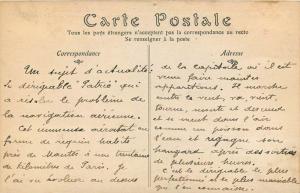 Carte Postale
Tous les pays étrangers n'acceptent pas la correspondance au recto
Se renseigner à la poste
Correspondance
Adresse
Un sujet d'actualité:
Le dirigeable "Patrie" qui
a résolu le problème de
la navigation aérienne.
Cet immense aérostat en
forme de requin habite
près de Mantes à une trentaine
de kilomètres de Paris. Je
l'ai vu évoluer au dessus
de la capitale où il est
venu faire maintes
apparitions. Il marche
contre le vent, va, vient,
tourne, monte et descend
et se meut dans l'air
comme un poisson dans
l'eau et regagne son
hangard après des sorties
de plusieurs heures.
C'est le dirigeable le plus
perfectionné et le plus maniable
que l'on connaisse.